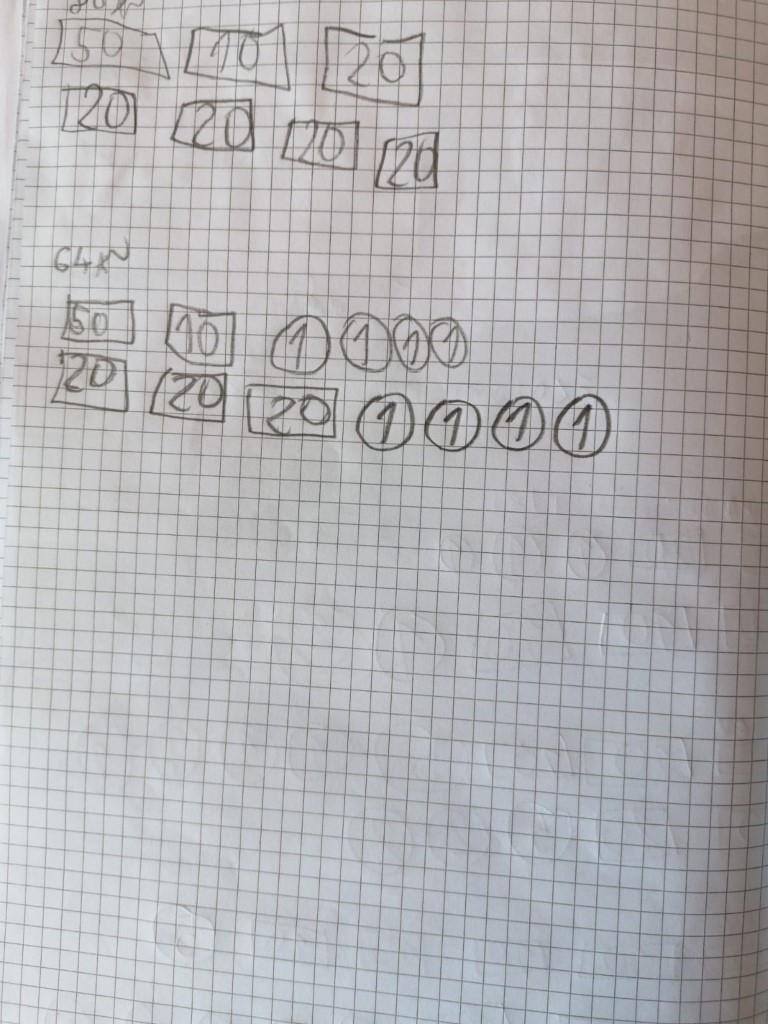 50 10 20
20 20 20 20
64 kn
50 10 1 1 1 1
20 20 20 1 1 1 1